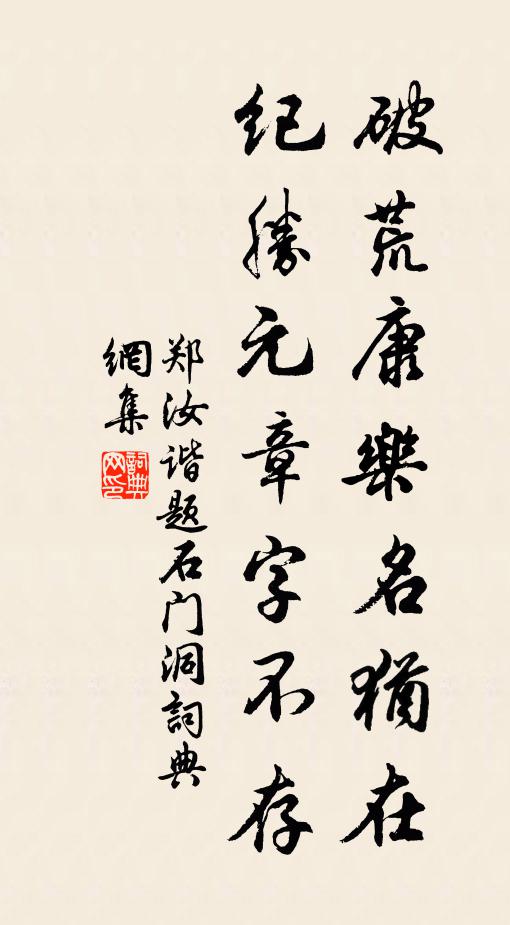 破荒康樂名猶在
紀勝元章字不存
郑汝谐题石门洞詞典
網集
詞典
网印